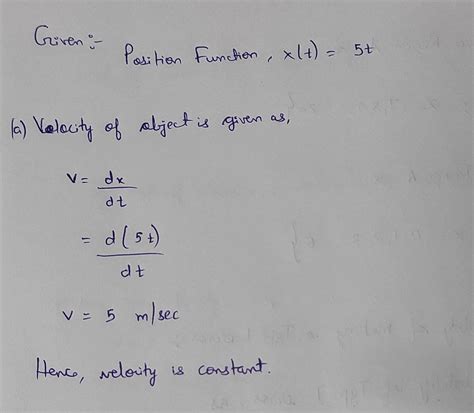 Given :-
Position Function, x(t) = 5t
(a) Velocity of object is given as,
v = dx/dt
= d(5t)/dt
v = 5 m/sec
Hence, velocity is constant.